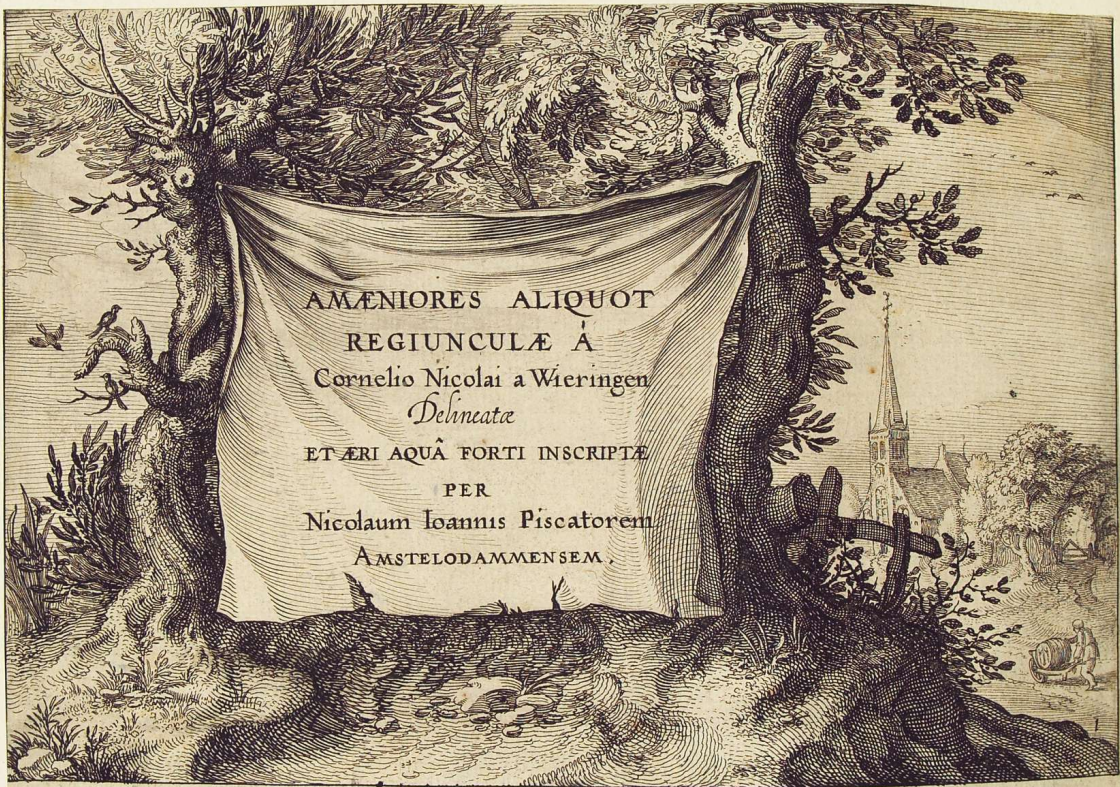 AMÆNIORES ALIQUOT
REGIUNCULÆ Á
Cornelio Nicolai a Wieringen
Delineatæ
ET ÆRI AQUÂ FORTI INSCRIPTÆ
PER
Nicolaum Ioannis Piscatorem
AMSTELODAMMENSEM.
1